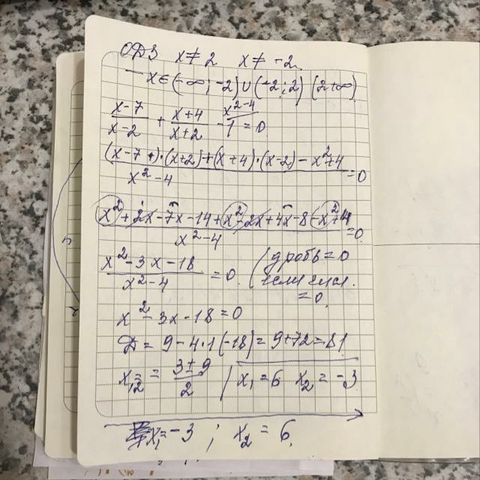 ОДЗ x ≠ 2 x ≠ -2
— x ∈ (-∞; -2) ∪ (-2; 2) (2+∞)
(x-7)/(x-2) + (x+4)/(x+2) - 1 = 0 x²-4
((x-7)·(x+2)+(x+4)·(x-2) - x²+4)/(x²-4) = 0
(x²+2x-7x-14+x²-2x+4x-8-x²+4)/(x²-4) = 0
(x²-3x-18)/(x²-4) = 0 (дробь = 0
если числ.
= 0
x²-3x-18=0
Д = 9-4·1(-18) = 9+72=81
x₁,₂ = (3±9)/2 / x₁ = 6 x₂ = -3
x₁=-3 ; x₂ = 6.